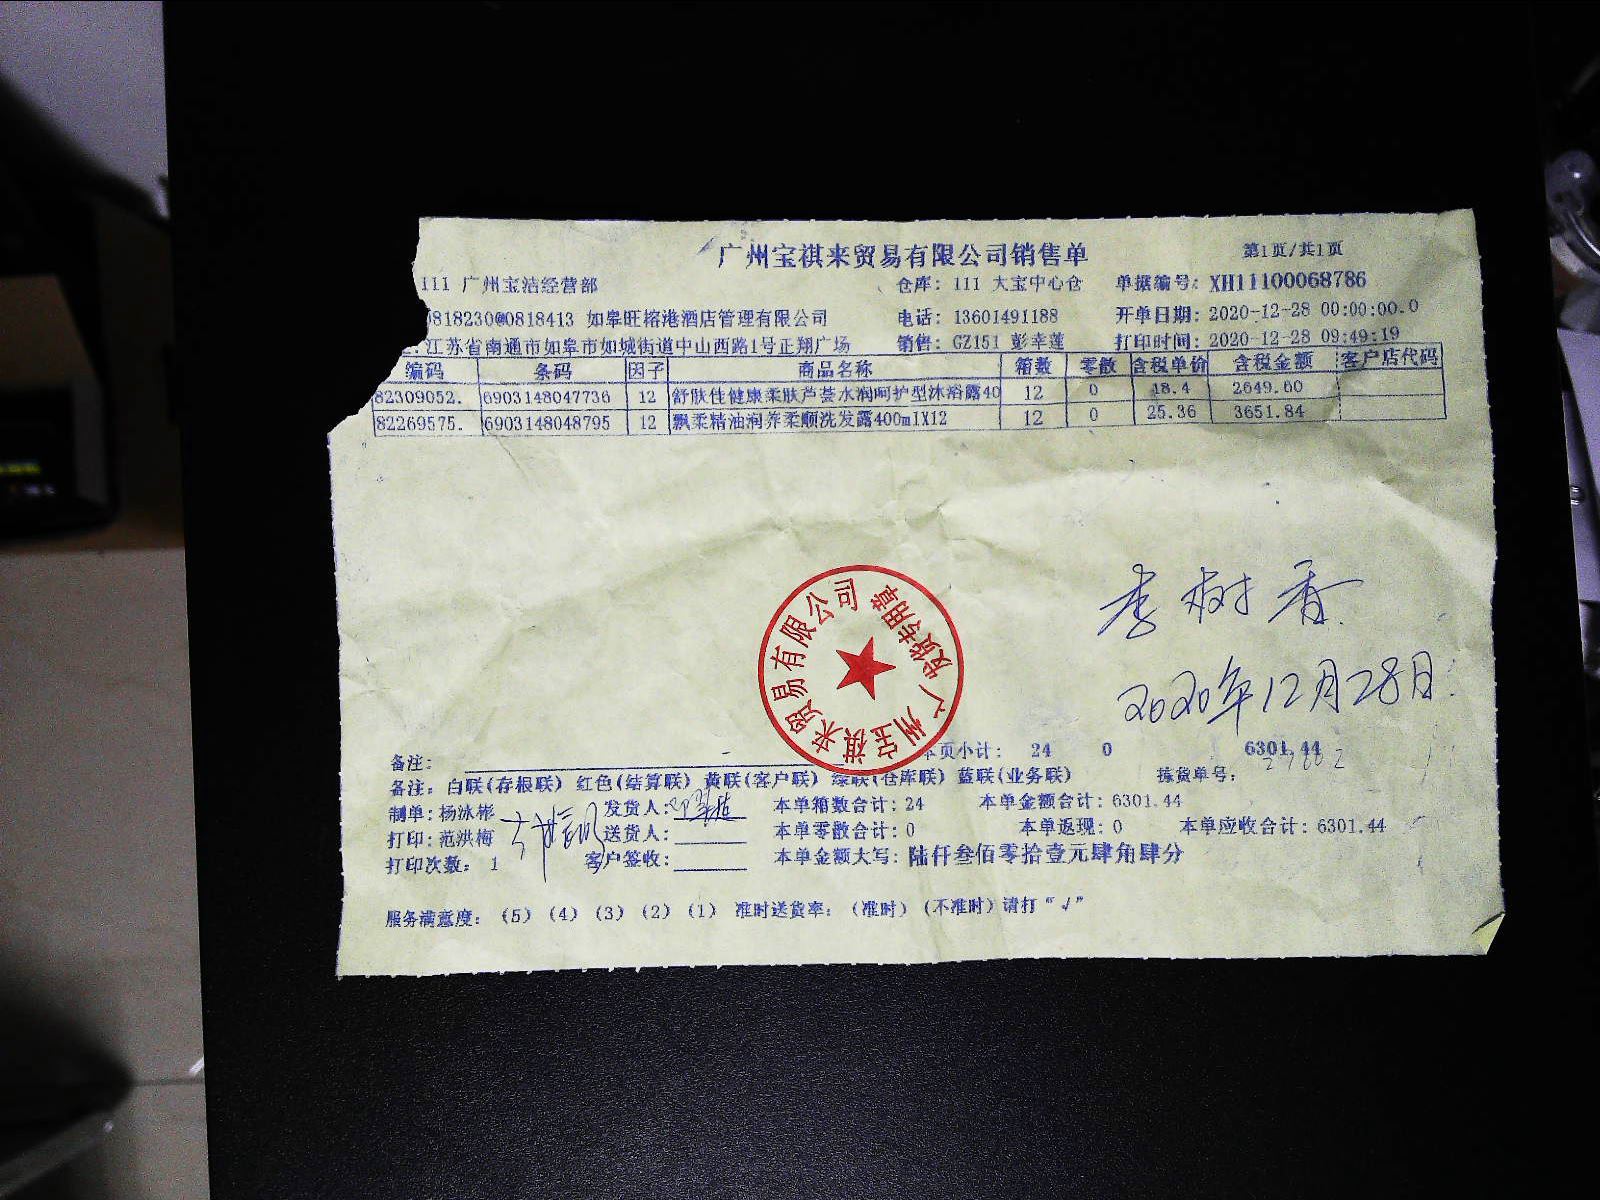 广州宝祺来贸易有限公司销售单 第1页/共1页
111 广州宝洁经营部 仓库: 111 大宝中心仓 单据编号: XH11100068786
0818230@0818413 如皋旺榕港酒店管理有限公司 电话: 13601491188 开单日期: 2020-12-28 00:00:00.0
江苏省南通市如皋市如城街道中山西路1号正翔广场 销售: GZ151 彭幸莲 打印时间: 2020-12-28 09:49:19
编码 条码 因子 商品名称 箱数 零散 含税单价 含税金额 客户店代码
82309052. 6903148047736 12 舒肤佳健康柔肤芦荟水润呵护型沐浴露40 12 0 18.4 2649.60
82269575. 6903148048795 12 飘柔精油润养柔顺洗发露400mlX12 12 0 25.36 3651.84
李树香
2020年12月28日
广州宝祺来贸易有限公司
发货专用章
备注: 本页小计: 24 0 6301.44
备注: 白联(存根联) 红色(结算联) 黄联(客户联) 绿联(仓库联) 蓝联(业务联) 拣货单号:
制单: 杨泳彬 发货人: 本单箱数合计: 24 本单金额合计: 6301.44
打印: 范洪梅 送货人: 本单零散合计: 0 本单返现: 0 本单应收合计: 6301.44
打印次数: 1 客户签收: 本单金额大写: 陆仟叁佰零拾壹元肆角肆分
服务满意度: (5) (4) (3) (2) (1) 准时送货率: (准时) (不准时) 请打"√"